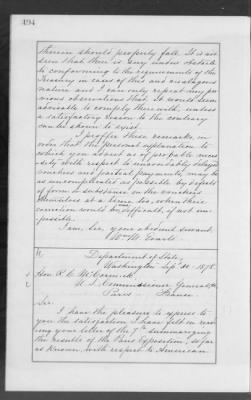 494
therein should properly fall. It is sel-
dom that there is any undue obstacle
to conforming to the requirements of the
Treasury in cases of this and analogous
nature and I can only repeat my pre-
vious observations that it would seem
advisable to comply therewith, unless
a satisfactory reason to the contrary
can be shown to exist.
I proffer these remarks, in
order that the personal explanation to
which you advert as of probable neces-
sity with respect to unavoidably delayed
vouchers and partial payments, may be
as uncomplicated as possible by defects
of form or substance in the vouchers
themselves at a time, too, when their
correction would be difficult, if not im-
possible.
I am, sir, your obedient servant,
Wm M. Evarts.
Department of State,
Washington Sep. 20. 1878.
Hon R. C. McCormick,
U. S. Commissioner General, &c,
Paris France
Sir:
I have the pleasure to express to
you the satisfaction I have felt in read-
ing your letter of the 7th summarizing
the results of the Paris Exposition, so far
as known, with respect to American